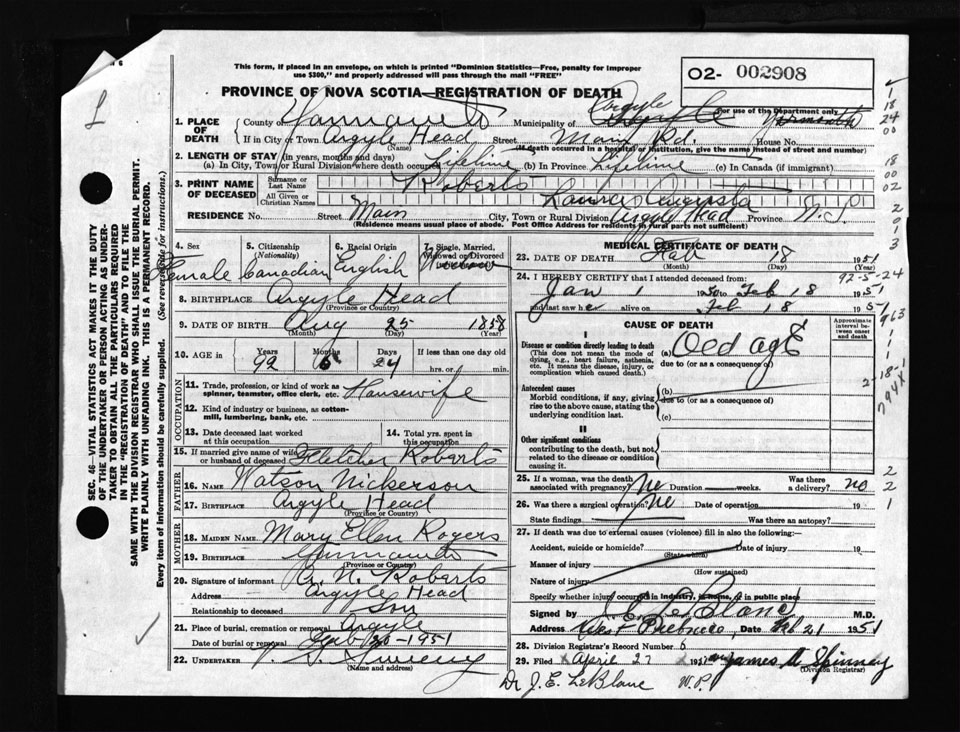 This form, if placed in an envelope, on which is printed "Dominion Statistics—Free, penalty for improper
use $300," and properly addressed will pass through the mail "FREE"
O2- 002908
PROVINCE OF NOVA SCOTIA—REGISTRATION OF DEATH
For use of the Department only
1. PLACE OF DEATH
County of Yarmouth Municipality of Argyle
If in City or Town Argyle Head Street Main Rd. House No.
(Name) (If death occurred in a hospital or institution, give the name instead of street and number)
2. LENGTH OF STAY (in years, months and days)
(a) In City, Town or Rural Division where death occurred Lifetime (b) In Province Lifetime (c) In Canada (if immigrant)
3. PRINT NAME OF DECEASED
Surname or Last Name Roberts
All Given or Christian Names Laura Augusta
RESIDENCE No. Street Main City, Town or Rural Division Argyle Head Province N.S.
(Residence means usual place of abode. Post Office Address for residents in rural parts not sufficient)
4. Sex 5. Citizenship (Nationality) 6. Racial Origin 7. Single, Married, Widowed or Divorced
Female Canadian English Widow
8. BIRTHPLACE Argyle Head
(Province or Country)
9. DATE OF BIRTH Aug 25 1858
(Month) (Day) (Year)
10. AGE in Years Months Days If less than one day old
92 24 hrs. or min.
OCCUPATION
11. Trade, profession, or kind of work as spinner, teamster, office clerk, etc. Housewife
12. Kind of industry or business, as cotton-mill, lumbering, bank, etc.
13. Date deceased last worked at this occupation
14. Total yrs. spent in this occupation
15. If married give name of wife or husband of deceased Fletcher Roberts
FATHER
16. NAME Watson Nickerson
17. BIRTHPLACE Argyle Head
(Province or Country)
MOTHER
18. MAIDEN NAME Mary Ellen Rogers
19. BIRTHPLACE Yarmouth
(Province or Country)
20. Signature of informant Roberts
Address Argyle Head
Relationship to deceased Son
21. Place of burial, cremation or removal Argyle
Date of burial or removal Feb/20-1951
22. UNDERTAKER Sweeny
(Name and address)
MEDICAL CERTIFICATE OF DEATH
23. DATE OF DEATH Feb 18 1951
(Month) (Day) (Year)
92-5-24
24. I HEREBY CERTIFY that I attended deceased from
Jan 1 1950 to Feb 18 1951
and last saw her alive on Feb 18 195
CAUSE OF DEATH
Approximate interval between onset and death
I
Disease or condition directly leading to death (a) Old age
(This does not mean the mode of dying, e.g., heart failure, asthenia, etc. It means the disease, injury, or complication which caused death.)
due to (or as a consequence of)
Antecedent causes (b)
Morbid conditions, if any, giving rise to the above cause, stating the underlying condition last.
due to (or as a consequence of)
(c)
II
Other significant conditions
contributing to the death, but not related to the disease or condition causing it.
25. If a woman, was the death associated with pregnancy? no Duration weeks. Was there a delivery? no
26. Was there a surgical operation? no Date of operation 19
State findings Was there an autopsy?
27. If death was due to external causes (violence) fill in also the following:
Accident, suicide or homicide? (State which) Date of injury 19
Manner of injury
(How sustained)
Nature of injury
Specify whether injury occurred in industry, in home, or in public place
Signed by J. E. LeBlanc M.D.
Address West Pubnico, Date Feb 21 1951
28. Division Registrar's Record Number 6
29. Filed April 27 1951 James A Spinney
(Division Registrar)
Dr J. E. LeBlanc W.P.
SEC. 46—VITAL STATISTICS ACT MAKES IT THE DUTY
OF THE UNDERTAKER OR PERSON ACTING AS UNDER-
TAKER TO OBTAIN ALL THE PARTICULARS REQUIRED
IN THE "REGISTRATION OF DEATH" AND TO FILE THE
SAME WITH THE DIVISION REGISTRAR WHO SHALL ISSUE THE BURIAL PERMIT.
WRITE PLAINLY WITH UNFADING INK. THIS IS A PERMANENT RECORD.
Every item of information should be carefully supplied. (See reverse side for instructions.)